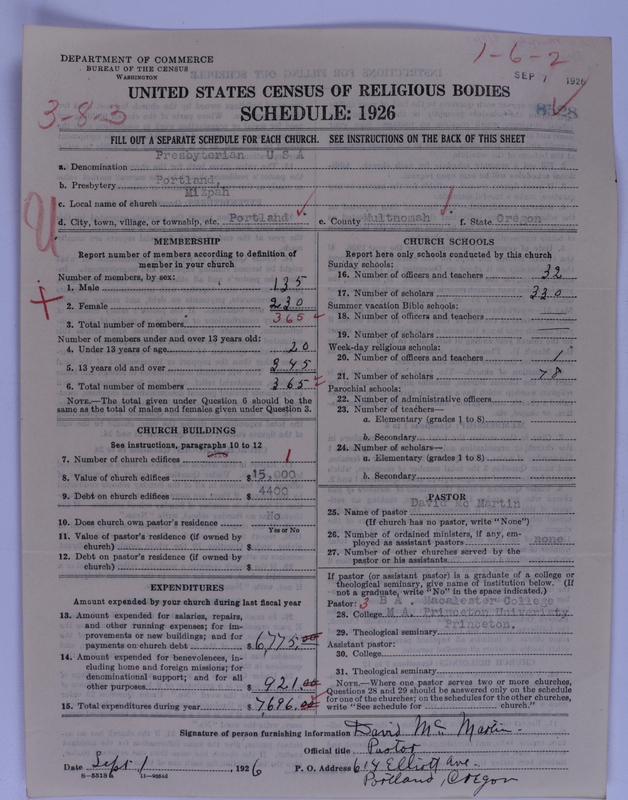 DEPARTMENT OF COMMERCE
BUREAU OF THE CENSUS
WASHINGTON
1-6-2
SEP 7 1926
UNITED STATES CENSUS OF RELIGIOUS BODIES
3-8-3
SCHEDULE: 1926
FILL OUT A SEPARATE SCHEDULE FOR EACH CHURCH. SEE INSTRUCTIONS ON THE BACK OF THIS SHEET
a. Denomination Presbyterian U S A
b. Presbytery Portland,
c. Local name of church Mizpah
d. City, town, village, or township, etc. Portland e. County Multnomah f. State Oregon
MEMBERSHIP
Report number of members according to definition of
member in your church
Number of members, by sex:
1. Male 135
2. Female 230
3. Total number of members 365
Number of members under and over 13 years old:
4. Under 13 years of age 20
5. 13 years old and over 345
6. Total number of members 365
NOTE.—The total given under Question 6 should be
same as the total of males and females given under Question 3.
CHURCH BUILDINGS
See instructions, paragraphs 10 to 12
7. Number of church edifices 1
8. Value of church edifices $15,000
9. Debt on church edifices $4400
10. Does church own pastor's residence No
Yes or No
11. Value of pastor's residence (if owned by
church) $
12. Debt on pastor's residence (if owned by
church) $
EXPENDITURES
Amount expended by your church during last fiscal year
13. Amount expended for salaries, repairs,
and other running expenses; for im-
provements or new buildings; and for
payments on church debt $6,775.00
14. Amount expended for benevolences, in-
cluding home and foreign missions; for
denominational support; and for all
other purposes $921.00
15. Total expenditures during year $7,696.00
CHURCH SCHOOLS
Report here only schools conducted by this church
Sunday schools:
16. Number of officers and teachers 32
17. Number of scholars 330
Summer vacation Bible schools:
18. Number of officers and teachers
19. Number of scholars
Week-day religious schools:
20. Number of officers and teachers 1
21. Number of scholars 78
Parochial schools:
22. Number of administrative officers
23. Number of teachers—
a. Elementary (grades 1 to 8)
b. Secondary
24. Number of scholars—
a. Elementary (grades 1 to 8)
b. Secondary
PASTOR
25. Name of pastor David Mc Martin
(If church has no pastor, write "None")
26. Number of ordained ministers, if any, em-
ployed as assistant pastors none
27. Number of other churches served by the
pastor or his assistants
If pastor (or assistant pastor) is a graduate of a college or
theological seminary, give name of institution below. (If
not a graduate, write "No" in the space indicated.)
Pastor: 3 B A . Macalester College
28. College M A. Princeton Univeristy
29. Theological seminary Princeton.
Assistant pastor:
30. College
31. Theological seminary
NOTE.—Where one pastor serves two or more churches,
Questions 28 and 29 should be answered only on the schedule
for one of the churches; on the schedules for the other churches,
write "See schedule for church."
Signature of person furnishing information David Mc Martin
Official title Pastor
Date Sept 1, 1926 P. O. Address 614 Elliott Ave.
Portland, Oregon